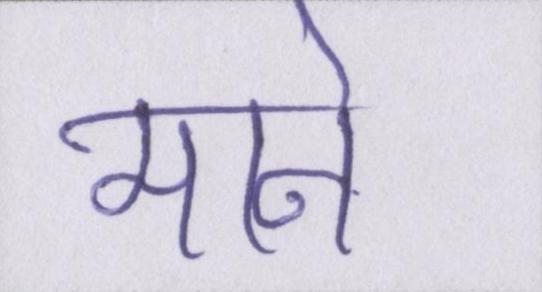 माने